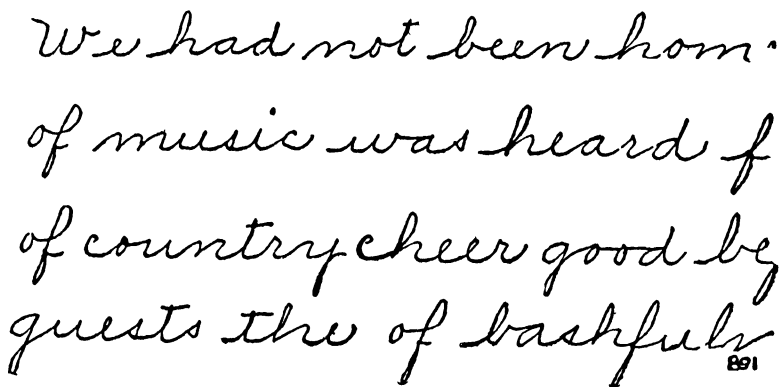 We had not been hom
of music was heard f
of country cheer good be
guests the of bashful
891